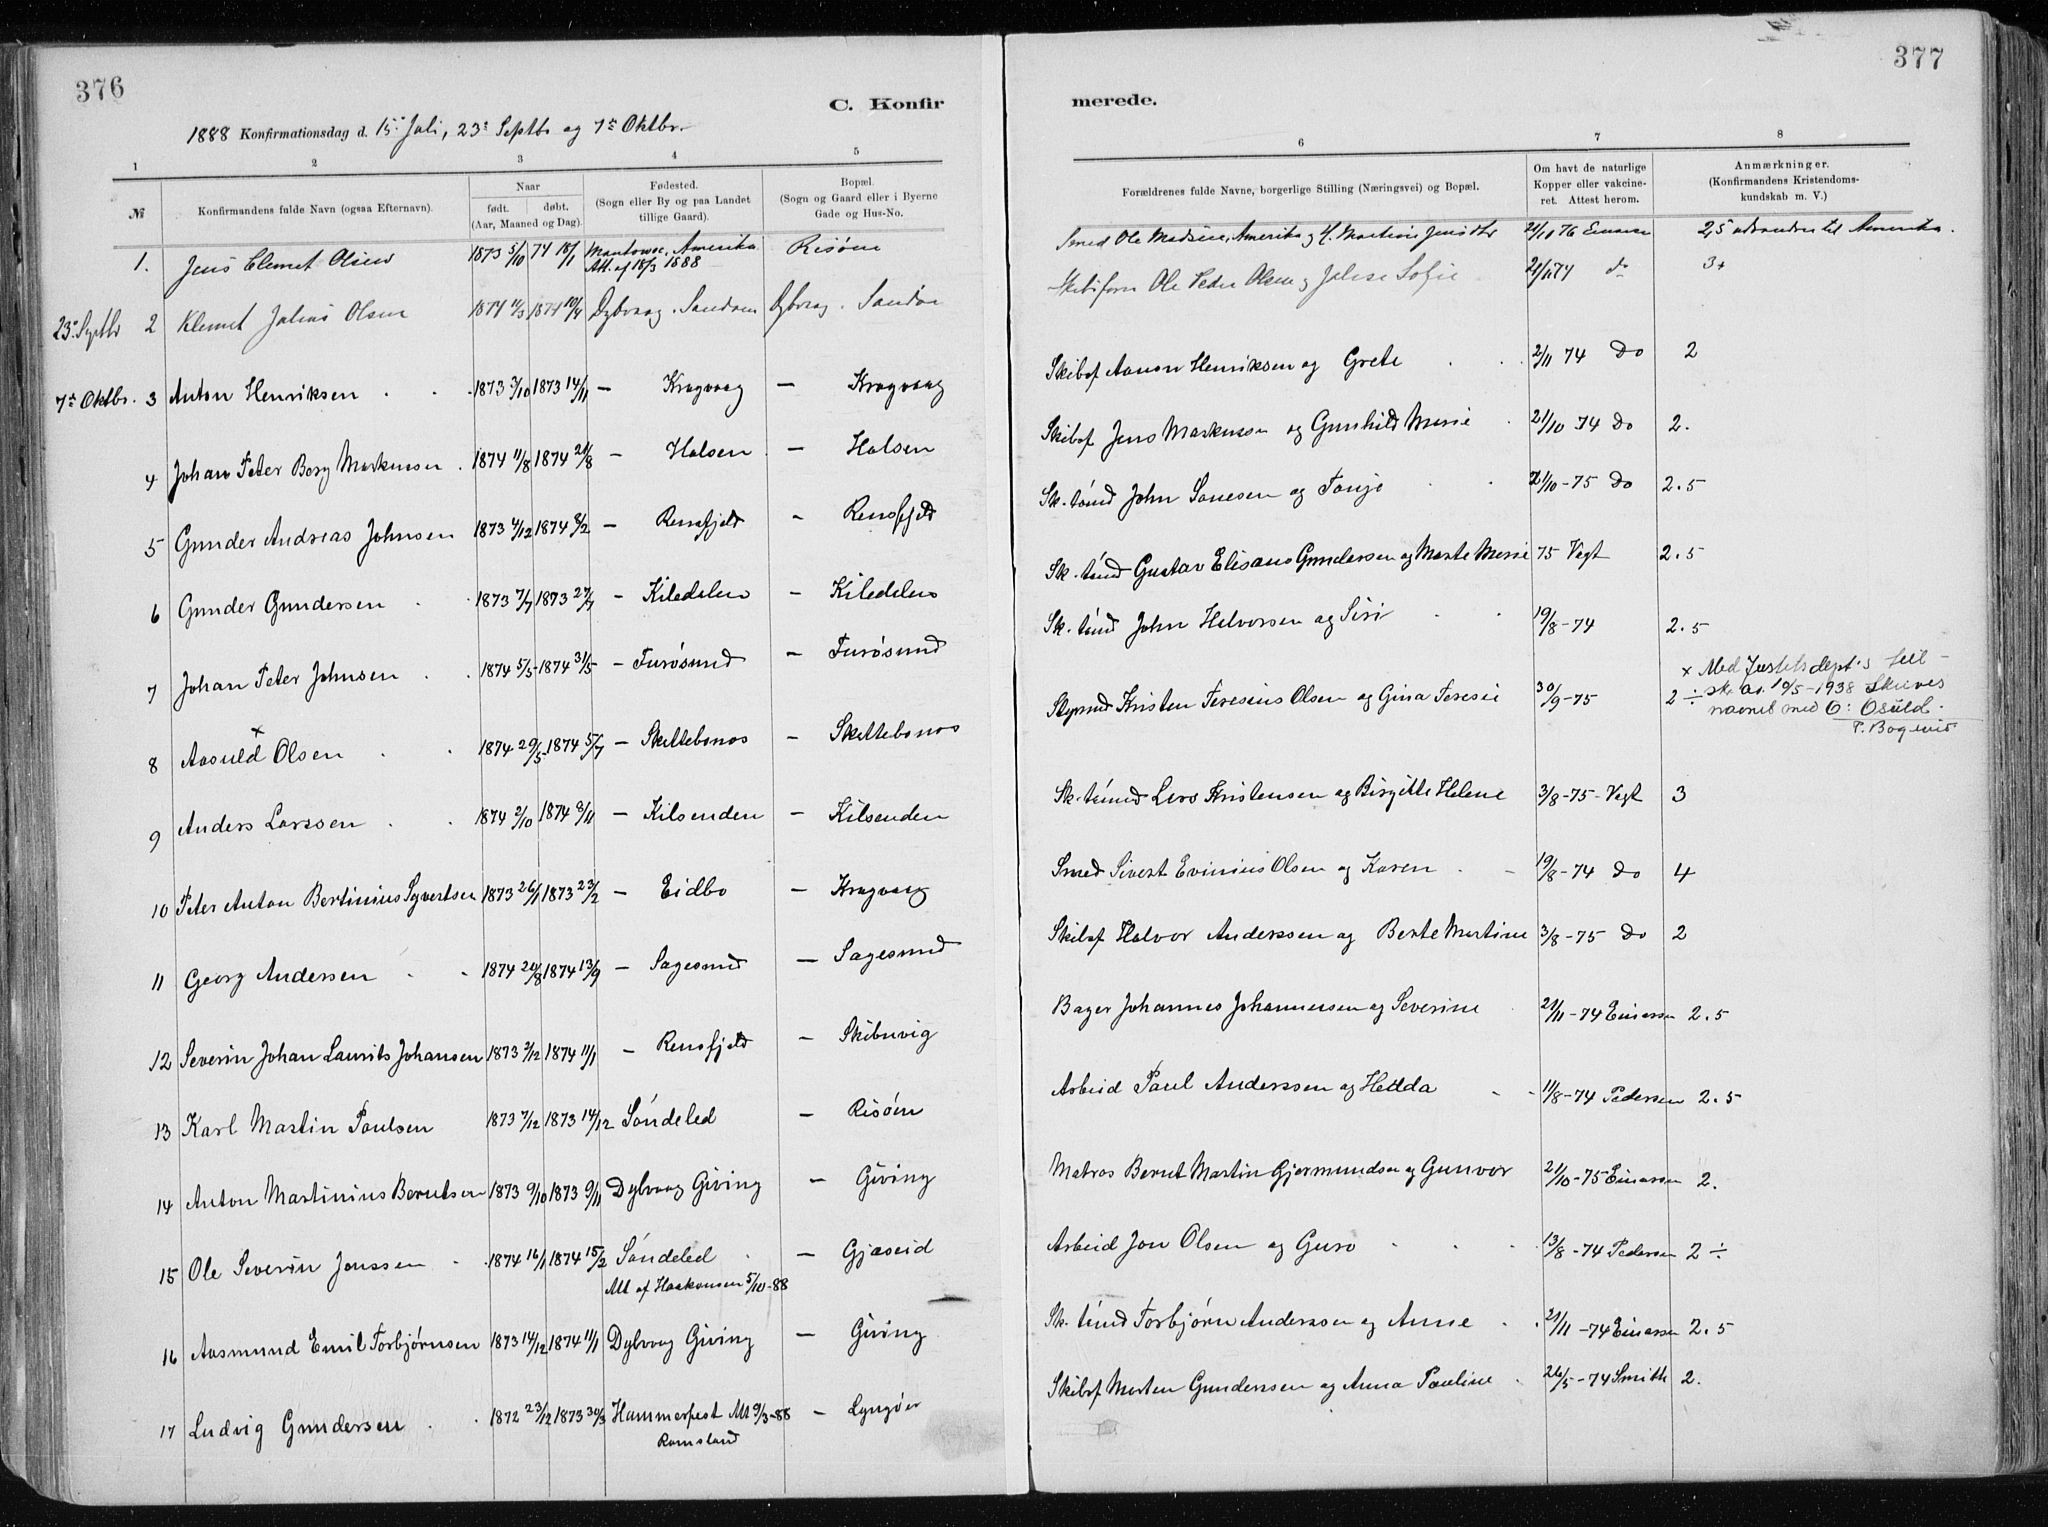 376
377
C. Konfir
merede.
1888 Konfirmationsdag d. 15de Juli, 23de Septbr og 7de Oktbr.
1 2 3 4 5
6 7 8
№
Konfirmandens fulde Navn (ogsaa Efternavn).
Naar
født. døbt.
(Aar, Maaned og Dag).
Fødested.
(Sogn eller By og paa Landet
tillige Gaard).
Bopæl.
(Sogn og Gaard eller i Byerne
Gade og Hus-No.
Forældrenes fulde Navne, borgerlige Stilling (Næringsvei) og Bopæl.
Om havt de naturlige
Kopper eller vakcine-
ret. Attest herom.
Anmærkninger.
(Konfirmandens Kristendoms-
kundskab m. V.)
1. Jens Clemet Olsen 1873 5/10 74 18/1 Amerika Risøen Smed Ole Madsen, Amerika og H. Martine 21/10 76 Einarsen 2,5 til Amerika.
Att. af 18/3 1888
23de Septbr 2 Klemet Julius Olsen 1874 11/3 1874 10/4 Dybvaag. Sandøen Dybvaag. Sandøen Skibsfører Ole Peder Olsen og Sofie 21/11 74 do 3+
7de Oktbr. 3 Anton Henriksen 1873 3/10 1873 14/11 — Kragvaag — Kragvaag Skibsf Aanon Henriksen og Grete 2/11 74 Do 2
4 Johan Peter Borg Markussen 1874 11/8 1874 21/8 — Holsen — Holsen Skibsf Jens Markussen og Gunhild Marie 21/10 74 Do 2.
5 Gunder Andreas Johnsen 1873 4/12 1874 8/2 — Rensfjeld — Rensfjeld Sk. tømd John og Tonje 21/10-75 Do 2.5
6 Gunder Gundersen 1873 7/7 1873 27/7 — Kiledalen — Kiledalen Sk. tømd Gustav Gundersen og Marte Marie 75 Vogt 2.5
7 Johan Peter Johnsen 1874 5/5 1874 31/5 — Furøsund — Furøsund Sk. tømd John Halvorsen og Siri 19/8-74 2.5
8 Aasuld x Olsen 1874 29/5 1874 5/7 — Skottebonos — Skottebonos Styrmd Kristen Teresius Olsen og Gina Teresie 30/9-75 2 ÷
x Med Justitsdept's
10/5-1938 skrives
navnet med O: Osuld.
9 Anders Larssen 1874 2/10 1874 8/11 — Kilsenden — Kilsenden Sk. tømmd Lars Kristensen og Birgitte Helene 3/8-75 Vogt 3
10 Peter Anton Bertinius Syvertsen 1873 26/1 1873 23/2 — Eidbo — Kragvaag Smed Sivert Evinius Olsen og Karen 19/8-74 Do 4
11 Georg Andersen 1874 20/8 1874 13/9 — Sagesund — Sagesund Skibsf Halvor Anderssen og Berte Martine 3/8-75 Do 2
12 Severin Johan Laurits Johansen 1873 3/12 1874 11/1 — Rensfjeld — Skibuvig Bager Johannes Johannessen og Severine 21/11-74 Einarsen 2.5
13 Karl Martin Paulsen 1873 7/12 1873 14/12 Søndeled — Risøen Arbeid Paul Anderssen og Hedda 11/8-74 Pedersen 2.5
14 Anton Martinius Berntsen 1873 9/10 1873 9/11 Dybvaag Giving — Giving Matros Bernt Martin Gjermundsen og Gunvor 21/10-75 Einarsen 2.
15 Ole Severin Jonssen 1874 16/1 1874 15/2 Søndeled — Gjæseid Arbeid Jon Olsen og Guro 13/8-74 Pedersen 2 ÷
Att af Haakonsen 5/10-88
16 Aasmund Emil Torbjørnsen 1873 14/12 1874 11/1 Dybvaag Giving — Giving Sk. tømd Torbjørn Anderssen og Anne 21/11-74 Einarsen 2.5
17 Ludvig Gundersen 1872 23/12 1873 30/3 Hammerfest Att 9/3-88 — Lyngøer Skibsf Morten Gunderssen og Anna Pauline 26/5-74 Smith 2.
Ramsland